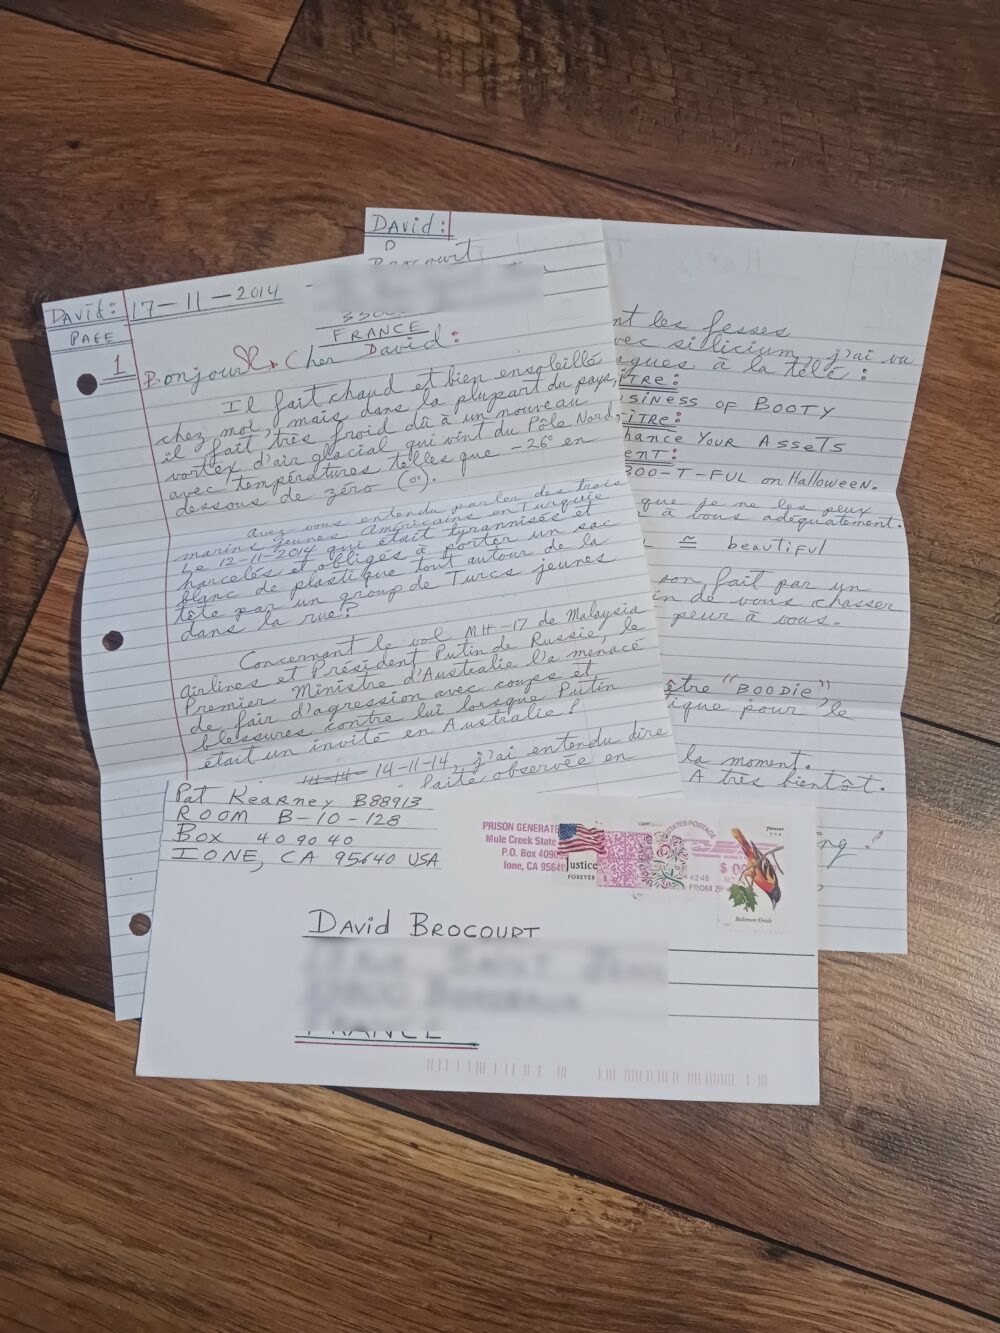 David:
Brocourt
FRANCE
David:
17-11-2014
PAGE
1
Bonjour Cher David:
Il fait chaud et bien ensoleillé
chez moi, mais dans la plupart du pays,
il fait très froid dû à un nouveau
vortex d'air glacial qui vint du Pôle Nord,
avec températures telles que -26° en
dessous de zéro (0°).
Avez-vous entendu parler des trois
marins jeunes Américains en Turquie
Le 12-11-2014 qui était tyrannisés et
harcelés et obligés à porter un sac
blanc de plastique tout autour de la
tête par un group de Turcs jeunes
dans la rue?
Concernant le vol MH-17 de Malaysia
Airlines et Président Putin de Russie, le
Premier Ministre d'Australie l'a menacé
de fair d'agression avec coups et
blessures contre lui lorsque Putin
était un invité en Australie!
14-11-14, j'ai entendu dire
faite observée en
nt les fesses
vec silicium, j'ai vu
agues à la télé:
ITRE:
SINESS OF BOOTY
ITRE:
hance YOUR ASSETS
ENT:
BOO-T-FUL on HalloweeN.
que je ne les peux
à vous adéquatement.
≅ beautiful
son, fait par un
in de vous chasser
peur à vous.
être "BOODIE"
tique pour le
la moment.
A très bientôt.
ng!
Pat Kearney B88913
ROOM B-10-128
Box 409040
IONE, CA 95640 USA
PRISON GENERATE
Mule Creek State
P.O. Box 4090
Ione, CA 9564
Justice
FOREVER
STATES POSTAGE
4248
FROM
forever
USA
Baltimore Oriole
DAVID BROCOURT
FRANCE